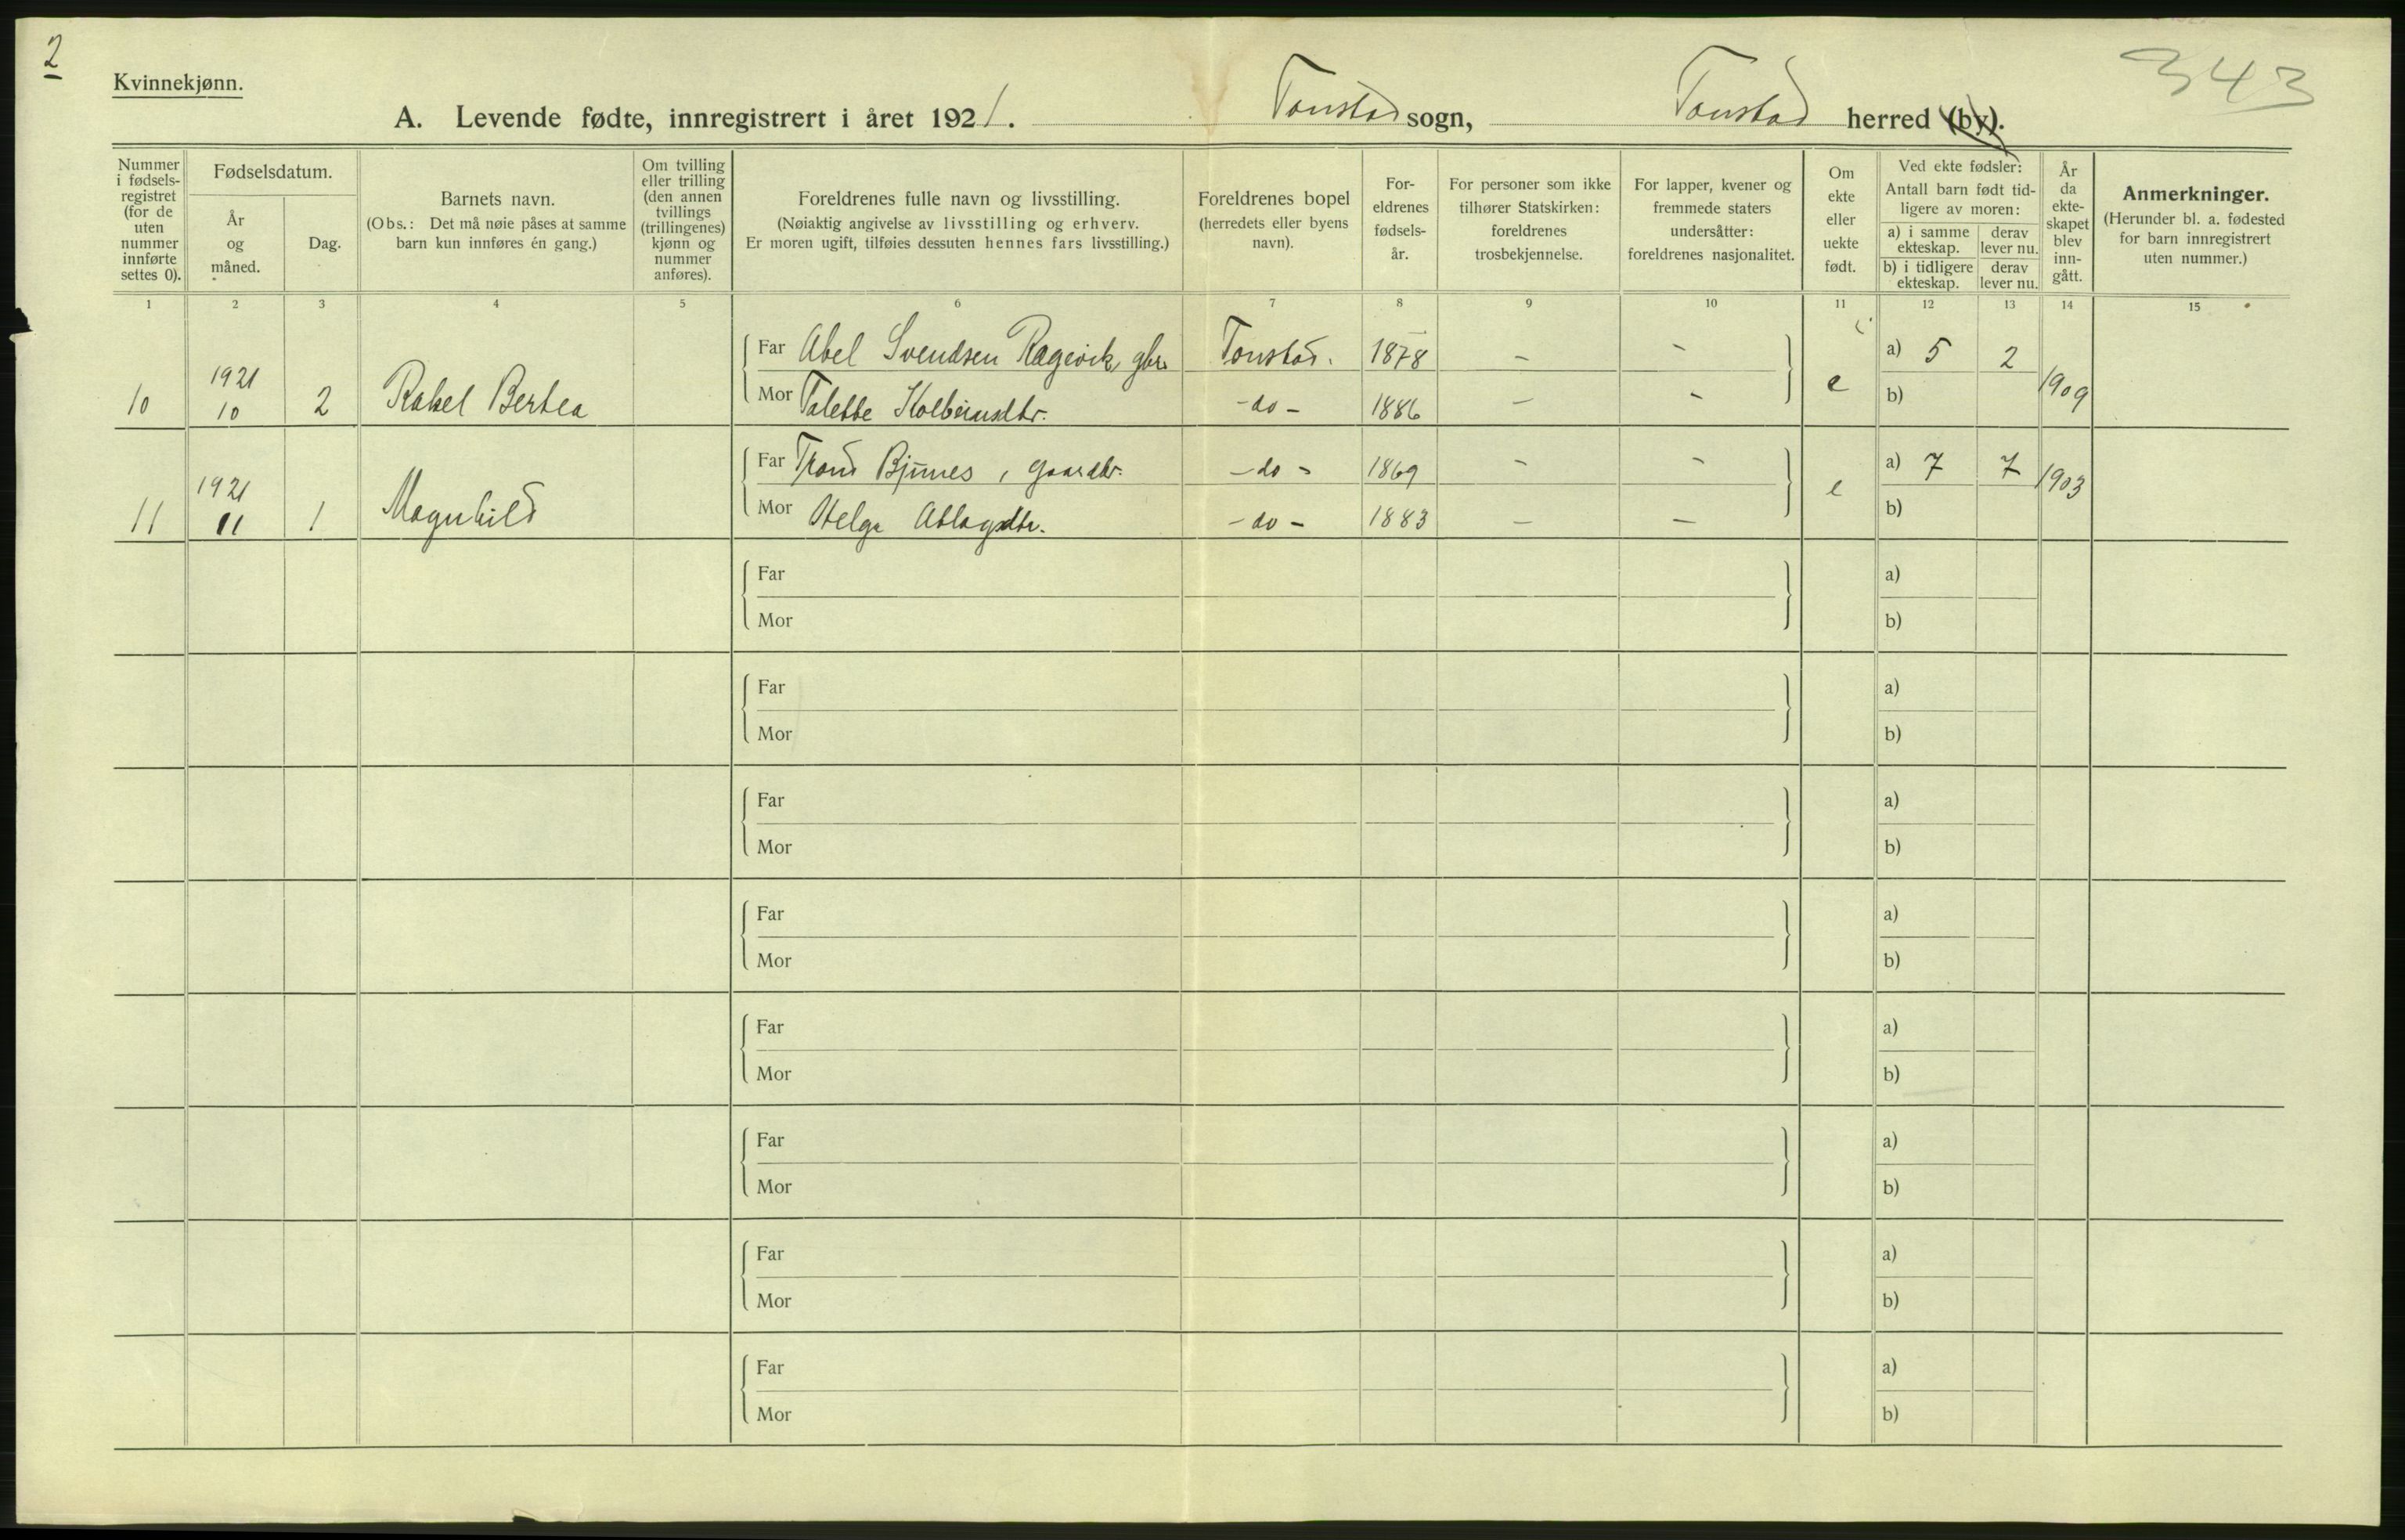 2
Kvinnekjønn.
343
A. Levende fødte, innregistrert i året 1921. Tonstad sogn, Tonstad herred (by).
Nummer i fødsels-registret (for de uten nummer innførte settes 0).
Fødselsdatum.
År og måned.
Dag.
Barnets navn.
(Obs.: Det må nøie påses at samme barn kun innføres én gang.)
Om tvilling eller trilling (den annen tvillings (trillingenes) kjønn og nummer anføres).
Foreldrenes fulle navn og livsstilling.
(Nøiaktig angivelse av livsstilling og erhverv.
Er moren ugift, tilføies dessuten hennes fars livsstilling.)
Foreldrenes bopel
(herredets eller byens navn).
For-eldrenes fødsels-år.
For personer som ikke tilhører Statskirken: foreldrenes trosbekjennelse.
For lapper, kvener og fremmede staters undersåtter: foreldrenes nasjonalitet.
Om ekte eller uekte født.
Ved ekte fødsler:
Antall barn født tid-ligere av moren:
a) i samme ekteskap.
derav lever nu.
b) i tidligere ekteskap.
derav lever nu.
År da ekte-skapet blev inn-gått.
Anmerkninger.
(Herunder bl. a. fødested for barn innregistrert uten nummer.)
1 2 3 4 5 6 7 8 9 10 11 12 13 14 15
10 1921 10 2 Rakel Bertea
Far Abel Svendsen Ragevik, gbr. Tonstad. 1878 – – e a) 5 2 1909
Mor Talette Kolbeinsdtr. - do - 1886 – – b)
11 1921 11 1 Magnhild
Far Trond Bjunes, gaardbr. - do - 1869 – – e a) 7 7 1903
Mor Helga Atlagsdtr. - do - 1883 – – b)
Far a)
Mor b)
Far a)
Mor b)
Far a)
Mor b)
Far a)
Mor b)
Far a)
Mor b)
Far a)
Mor b)
Far a)
Mor b)
Far a)
Mor b)